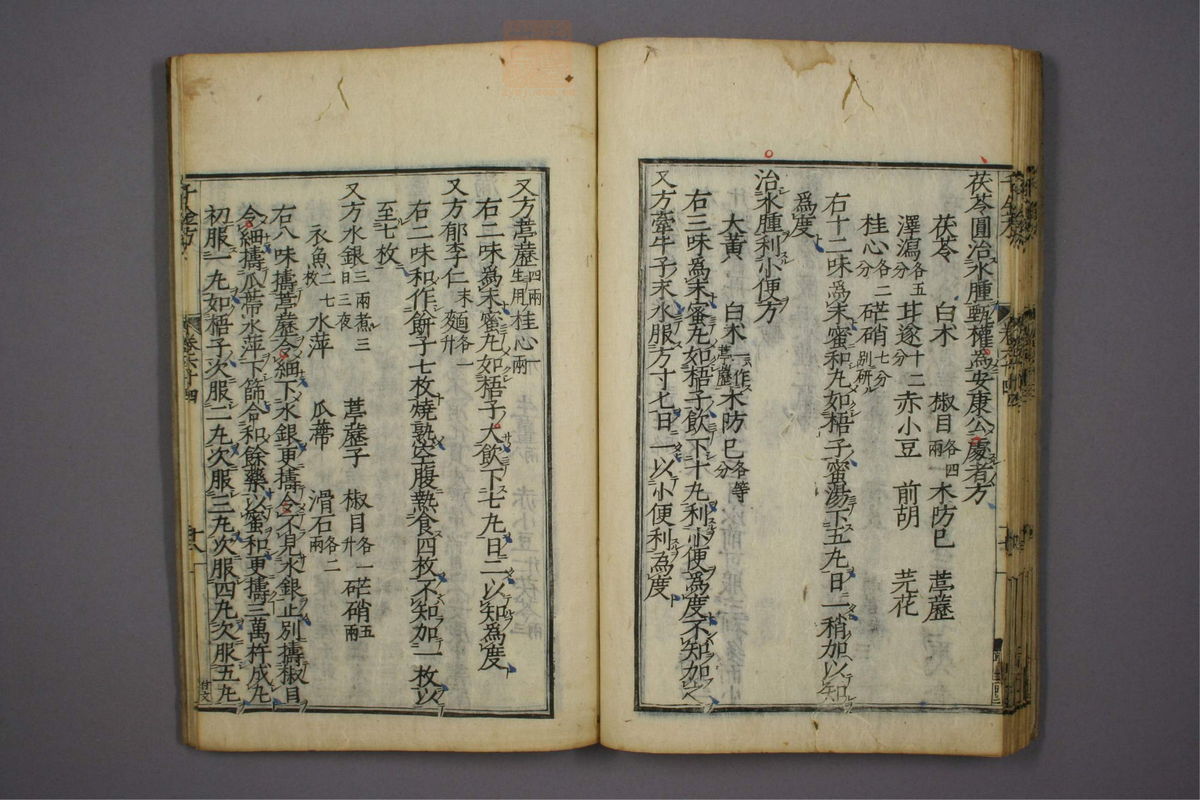 茯苓圓治水腫甄權為安康公處者方
茯苓 白朮 椒目各四兩 木防已 葶藶
澤瀉各五分 甘遂十二分 赤小豆 前胡 芫花
桂心各二分 硭硝七分別研
右十二味為末蜜和丸如梧子蜜湯下五丸日一稍加以知
為度
治水腫利小便方
大黃 白朮一作葶藶 木防已各等分
右三味為末蜜丸如梧子飲下十丸利小便為度不知加之
又方牽牛子末水服方寸匕日一以小便利為度
又方葶藶四兩生用 桂心一兩
右二味為末蜜丸如梧子大飲下七丸日二以知為度
又方郁李仁末 麵各一升
右二味和作餅子七枚燒熟空腹熱食四枚不知加一枚以
至七枚
又方水銀三兩煮三日三夜 葶藶子 椒目各一升 硭硝五兩
衣魚二七枚 水萍 瓜蔕 滑石各二兩
右八味擣葶藶令細下水銀更擣令不見水銀止別擣椒目
令細擣瓜蔕水萍下篩合和餘藥以蜜和更擣三萬杵成丸
初服一丸如梧子次服二丸次服三丸次服四丸次服五丸
千金方
卷六十四